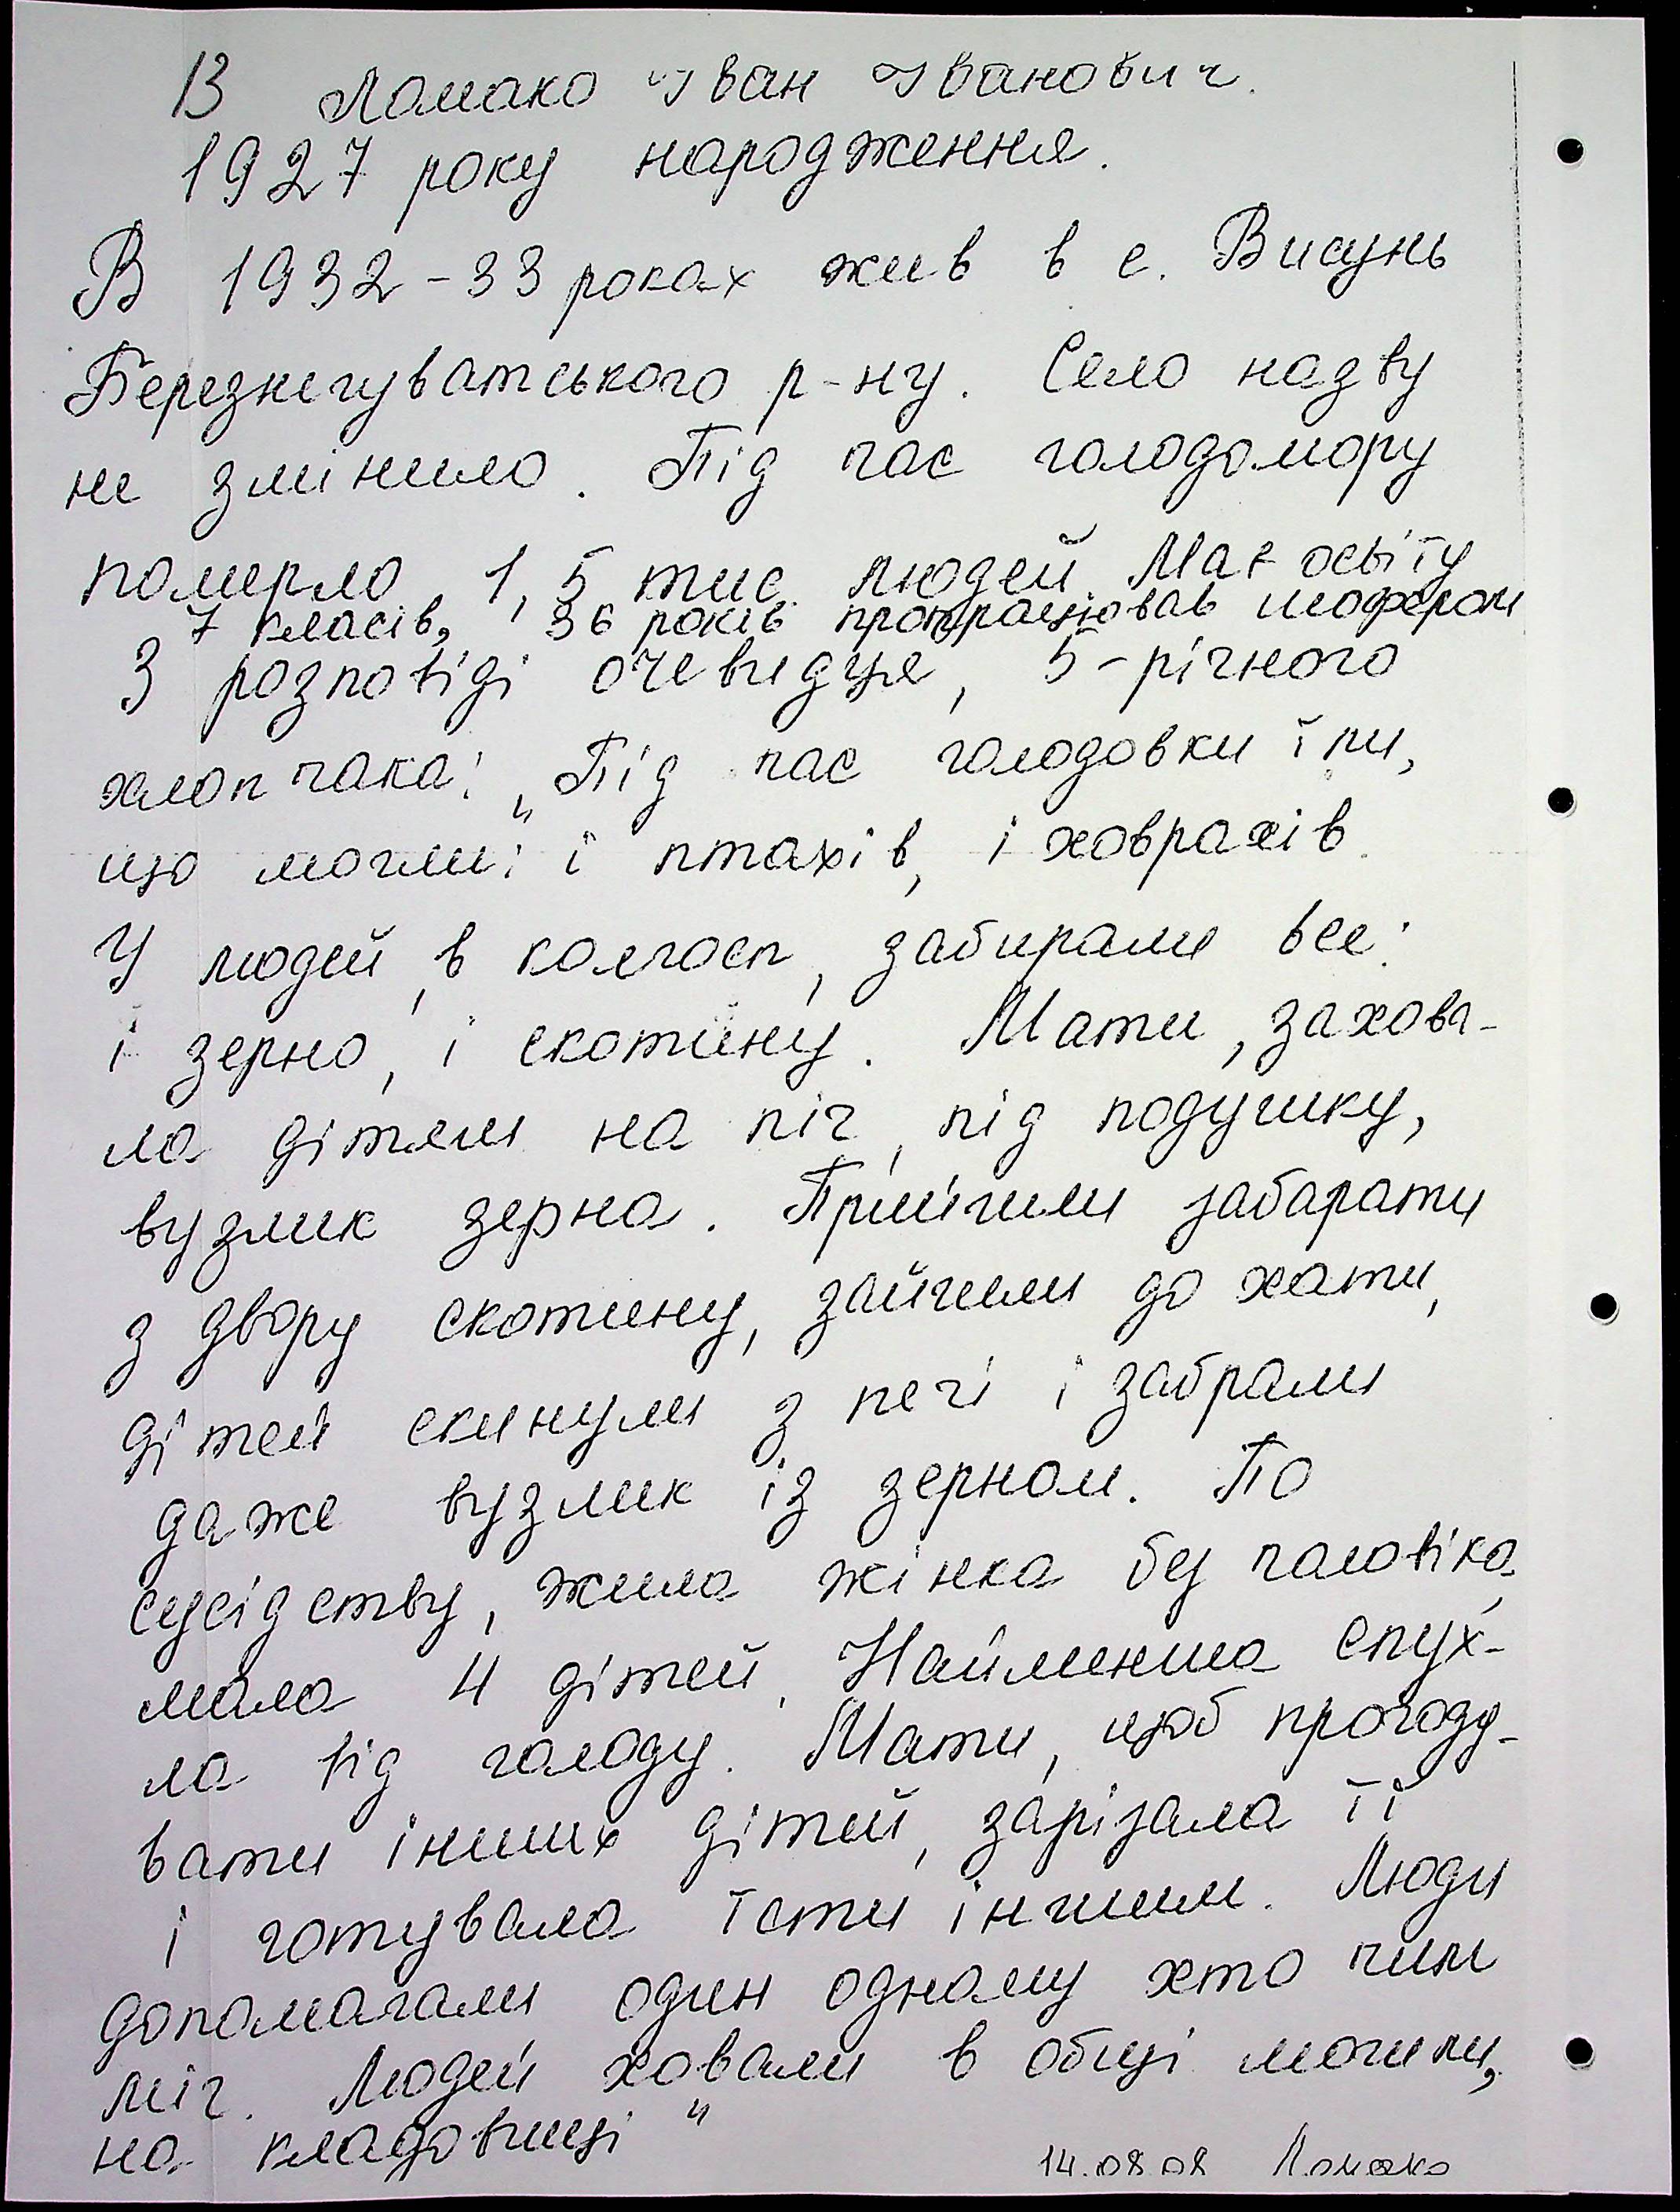 13 Ломако Іван Іванович.
1927 року народження.
В 1932-33 роках жив в с. Висунь
Березнегуватського р-ну. Село назву
не змінило. Під час голодомору
померло 1,5 тис. людей Має освіту
7 класів, 36 років пропрацював шофером
З розповіді очевидця, 5-річного
хлопчака: „Під час голодовки їли,
що могли: і птахів, і ховрахів.
У людей, в колгосп, забирали все:
і зерно, і скотину. Мати, захова-
ла дітям на піч, під подушку,
вузлик зерна. Прийшли забарати
з двору скотину, зайшли до хати,
дітей скинули з печі і забрали
даже вузлик із зерном. По
сусідству, жила жінка без чоловіка,
мала 4 дітей. Найменша спух-
ла від голоду. Мати, щоб прогоду-
вати інших дітей, зарізала її
і готувала їсти іншим. Люди
допомагали один одному хто чим
міг. Людей ховали в общі могили,
на кладовищі"
14.08.08 Ломако